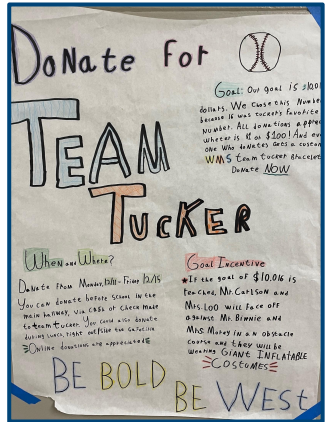 DoNate for
Goal: Our goal is
dollars. We Chose this Number
because 16 was tucker's favorite
Number. All donations
wheter is $1 or $100! And
one Who donates Gets a custom
WMS team tucker Bracelet
Donate NOW
TEAM
TUCKER
When and Where?
Donate from Monday, 12/11 - Friday 12/15
You can donate before School in the
main hallway, via cash or check made
to team tucker. You could also donate
during lunch, right outside the
Online donations are appreciated
Goal Incentive
If the goal of $10,016 is
reached, Mr. Carlson and
Mrs. Loo will face off
against Mr. Binnie and
Mrs. Morey in an obstacle
course and they will be
wearing GIANT INFLATABLE
COSTUMES
BE BOLD
BE WEST